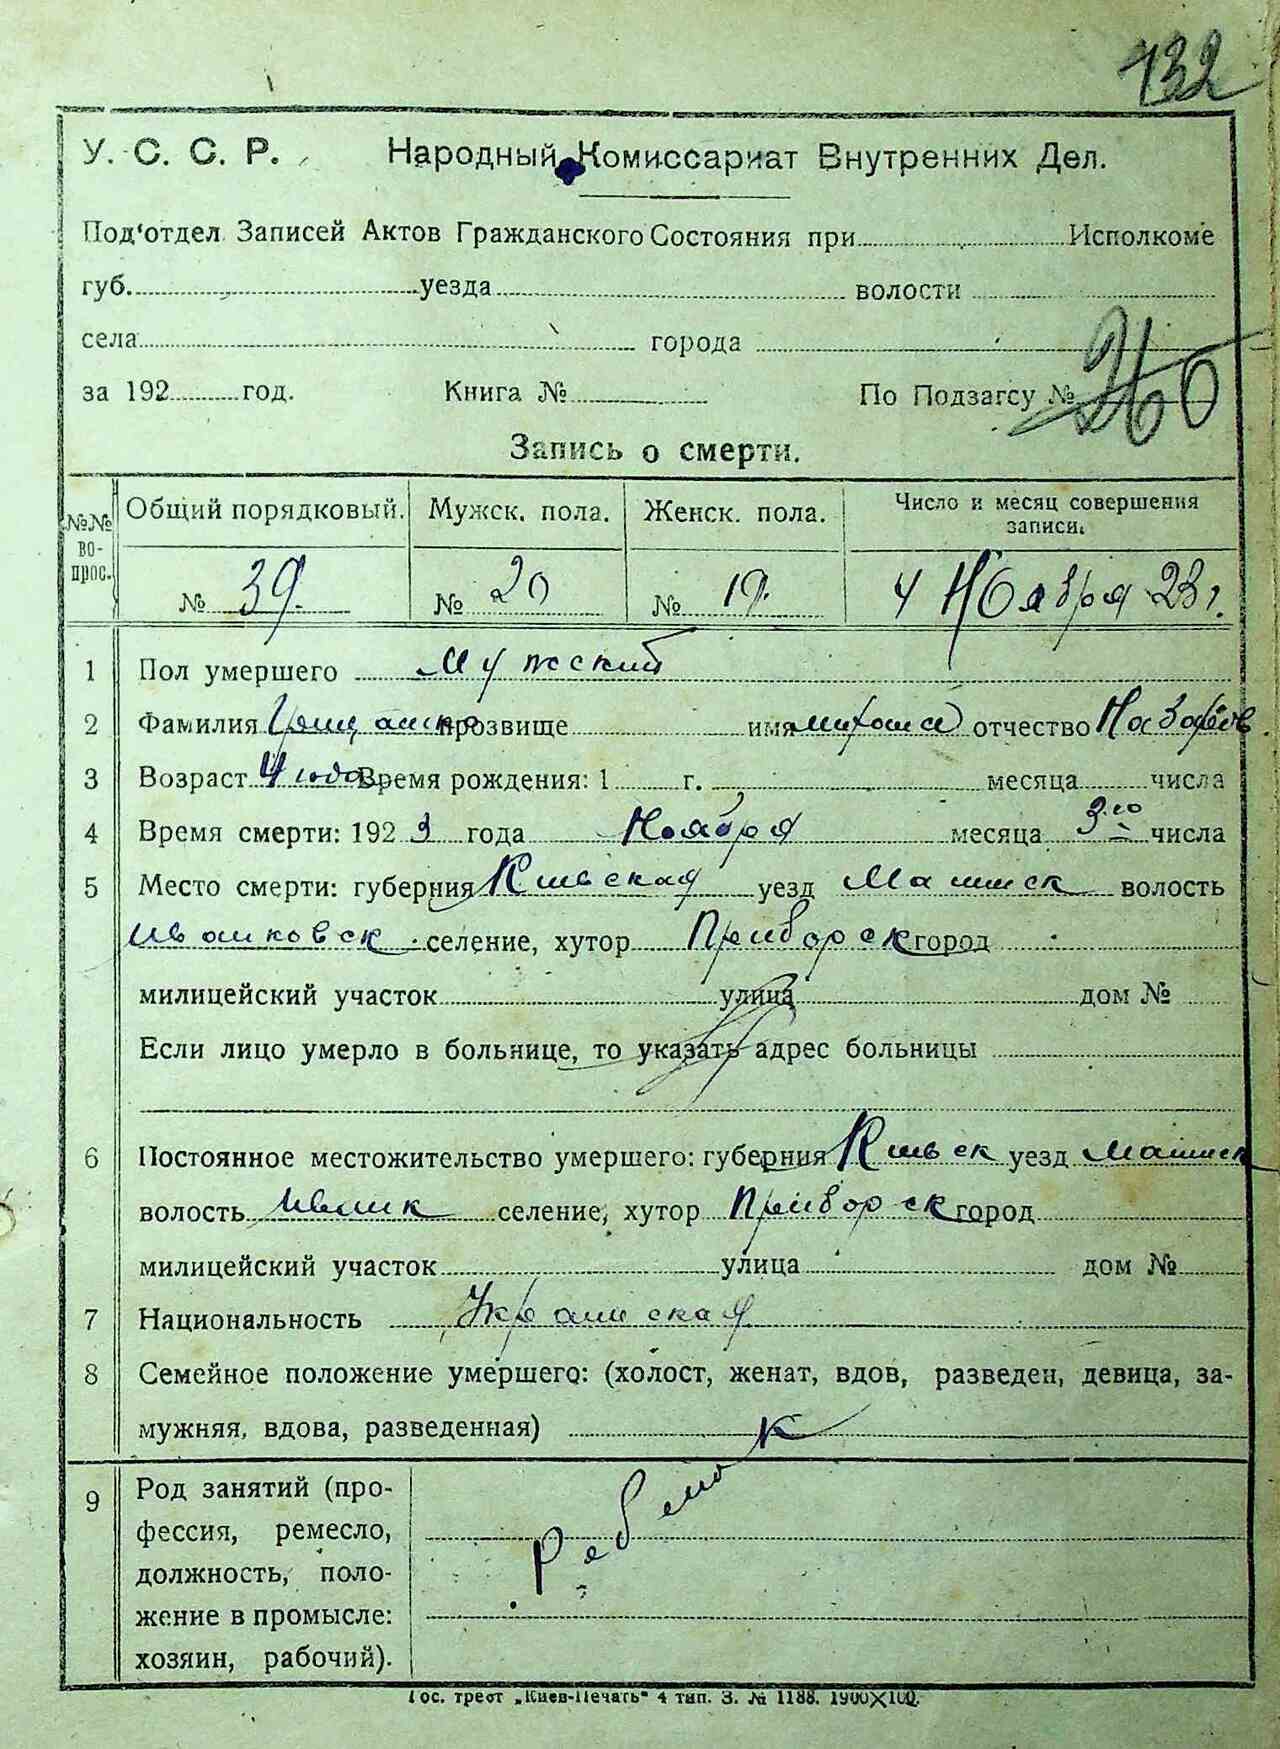 132
У. С. С. Р. Народный Комиссариат Внутренних Дел.
Под‘отдел Записей Актов Гражданского Состояния при Исполкоме
губ. уезда волости
села города
за 192 год. Книга № По Подзагсу № 260
Запись о смерти.
№№ во-прос. Общий порядковый. Мужск. пола. Женск. пола. Число и месяц совершения записи.
№ 39. № 20 № 19. 4 Ноября 23 г.
1 Пол умершего Мужский
2 Фамилия прозвище имя отчество
3 Возраст 4 года Время рождения: 1 г. месяца числа
4 Время смерти: 1923 года Ноября месяца 3го числа
5 Место смерти: губерния Киевская уезд волость
Иванковск селение, хутор Приборск город
милицейский участок улица дом №
Если лицо умерло в больнице, то указать адрес больницы
6 Постоянное местожительство умершего: губерния Киевск уезд
волость селение, хутор Приборск город
милицейский участок улица дом №
7 Национальность
8 Семейное положение умершего: (холост, женат, вдов, разведен, девица, за-
мужняя, вдова, разведенная)
Ребенок
9 Род занятий (про-
фессия, ремесло,
должность, поло-
жение в промысле:
хозяин, рабочий).
Гос. трест „Киев-Печать“ 4 тип. З. № 1188. 1900×100.